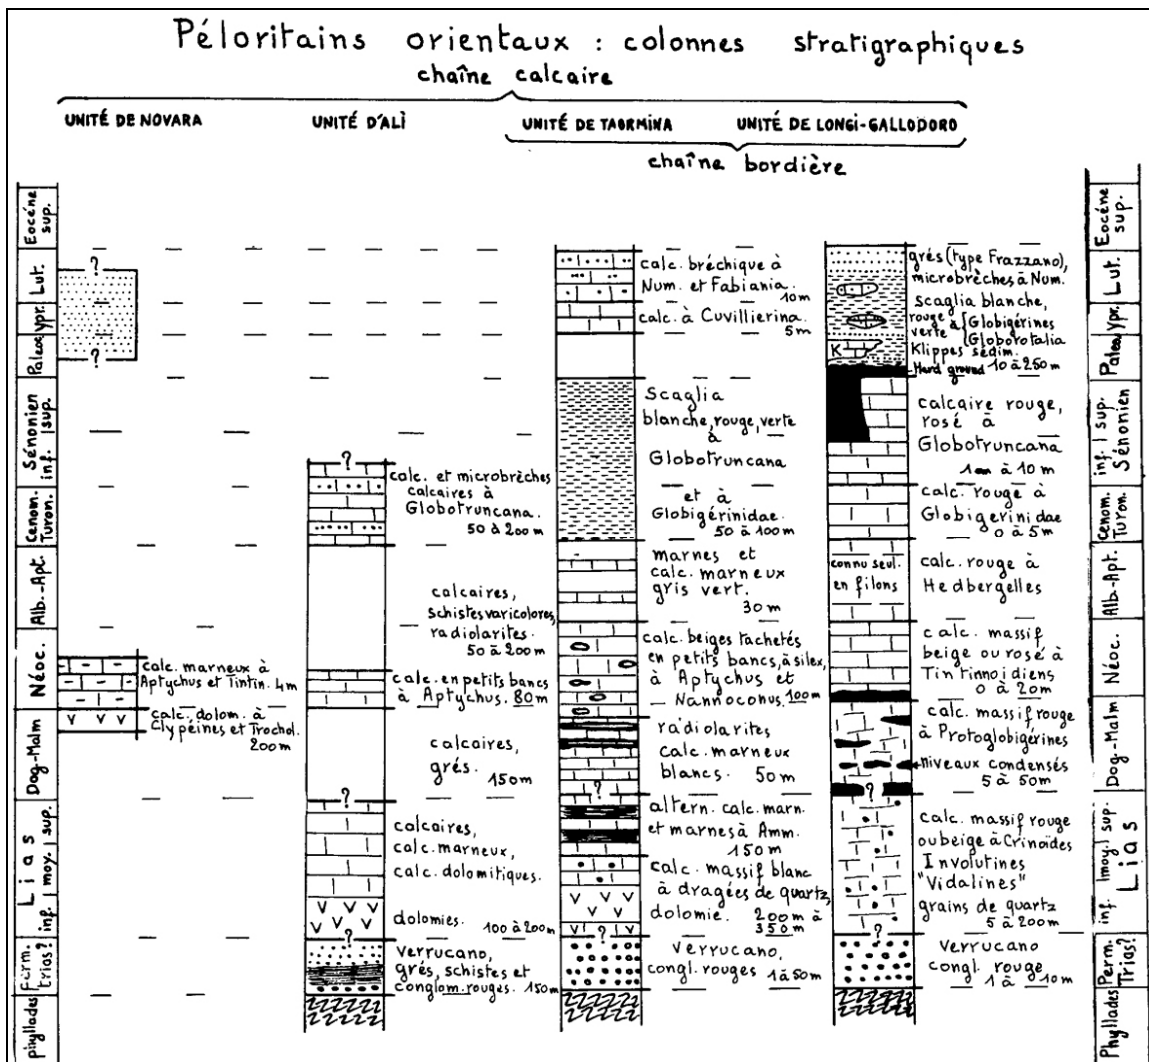 Péloritains orientaux : colonnes stratigraphiques
chaîne calcaire
UNITÉ DE NOVARA
UNITÉ D'ALÌ
UNITÉ DE TAORMINA
UNITÉ DE LONGI-GALLODORO
chaîne bordière
Eocène sup.
Lut.
ypr.
Paleoc
Sénonien
inf. | sup.
Cenom. Turon.
Alb.-Apt.
Néoc.
Dog-Malm
Lias
inf. | moy. | sup.
Perm. trias?
phyllades
?
?
calc. marneux à
Aptychus et Tintin. 4m
calc. dolom. à
Clypéines et Trochol.
200m
?
calc. et microbrèches
calcaires à
Globotruncana.
50 à 200m
calcaires,
schistes varicolores,
radiolarites.
50 à 200m
calc. en petits bancs
à Aptychus. 80m
calcaires,
grés. 150m
?
calcaires,
calc. marneux,
calc. dolomitiques.
dolomies. 100 à 200m
?
verrucano,
grés, schistes et
conglom. rouges. 150m
calc. bréchique à
Num. et Fabiania.
10m
calc. à Cuvillierina.
5m
Scaglia
blanche, rouge, verte
à
Globotruncana
et à
Globigérinidae.
50 à 100m
marnes et
calc. marneux
gris vert.
30m
calc. beiges tachetés
en petits bancs, à silex,
à Aptychus et
Nannoconus. 100m
radiolarites
calc. marneux
blancs. 50m
?
altern. calc. marn.
et marnes à Amm.
150m
calc. massif blanc
à dragées de quartz,
dolomie. 200m à
350m
?
verrucano,
congl. rouges 1 à 50m
grés (type Frazzano),
microbrèches à Num.
Scaglia blanche,
rouge & verte à Globigérines
Globorotalia
K
Klippes sédim.
Hard ground 10 à 250m
calcaire rouge,
rosé à
Globotruncana
1m à 10m
calc. rouge à
Globigerinidae
0 à 5m
connu seul.
en filons
calc. rouge à
Hedbergelles
calc. massif
beige ou rosé à
Tintinnoidiens
0 à 20m
calc. massif rouge
à Protoglobigérines
niveaux condensés
5 à 50m
?
calc. massif rouge
ou beige à Crinoïdes
Involutines
"Vidalines"
grains de quartz
5 à 200m
?
verrucano
congl. rouge
1 à 10m
Eocène sup.
Lut.
ypr.
Paleoc
inf. | sup.
Sénonien
Cenom. Turon.
Alb-Apt.
Néoc.
Dog-Malm
inf. | moy. | sup.
Lias
Perm. Trias?
Phyllades